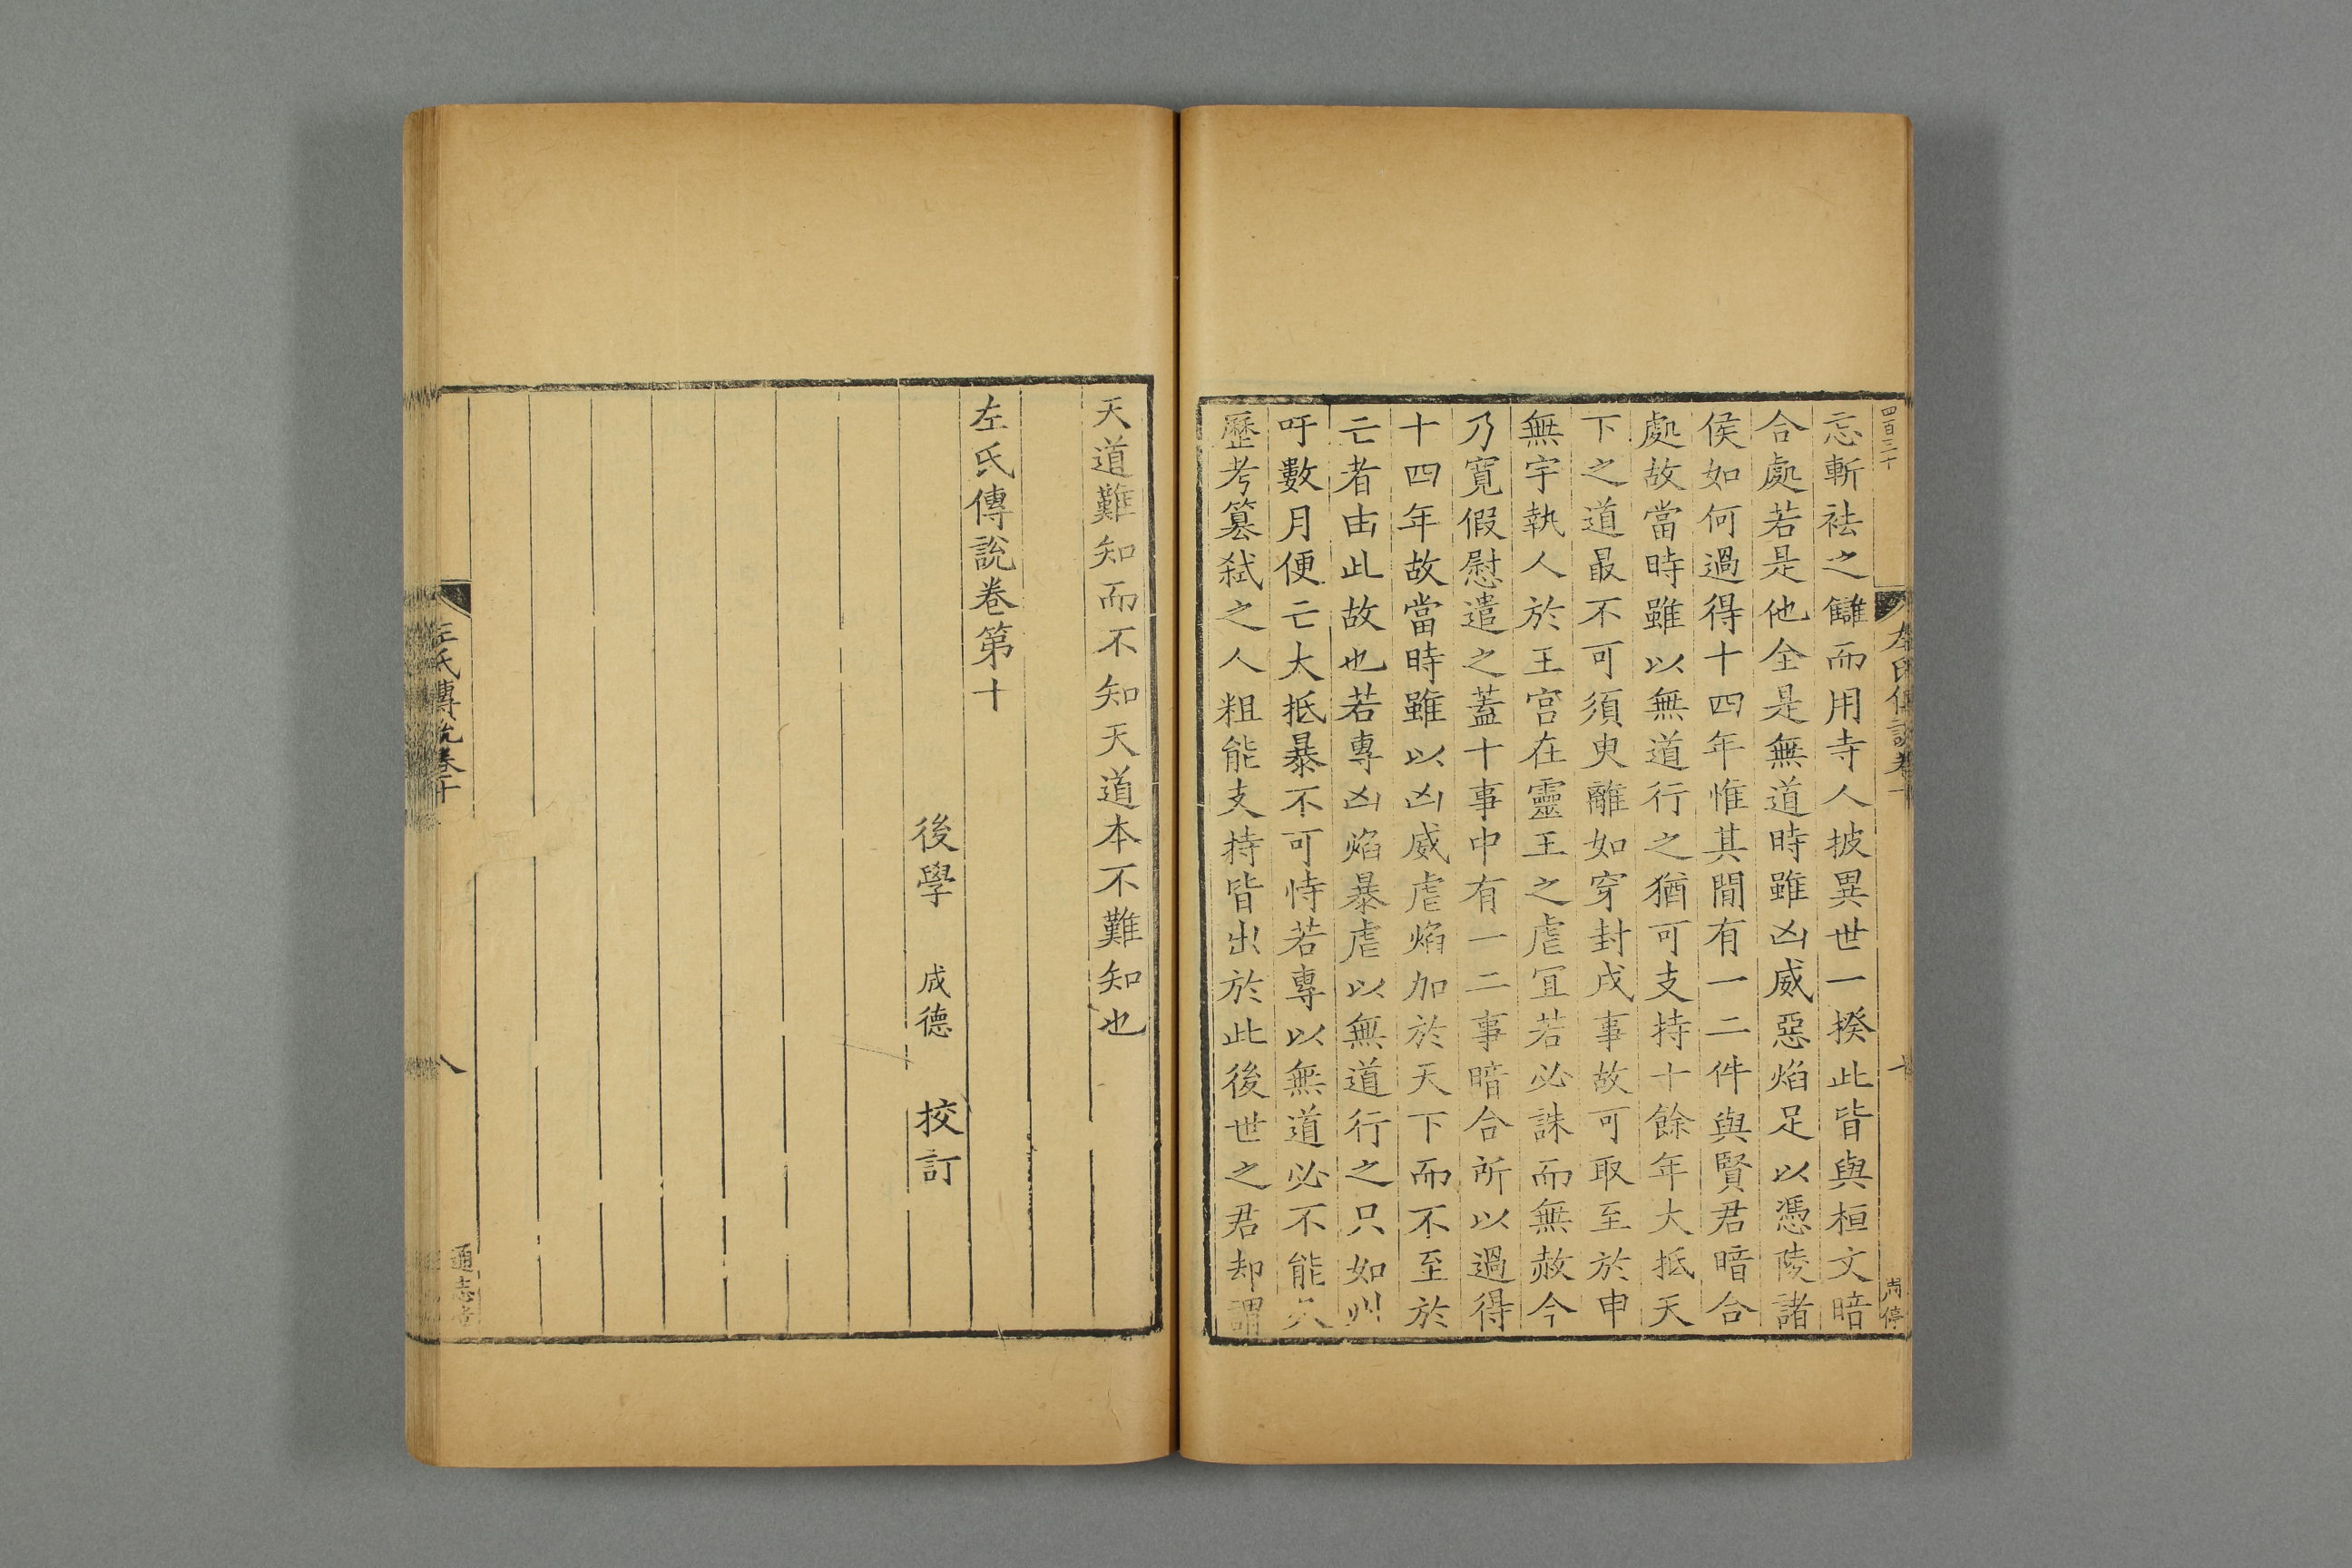 四百三十
忘斬袪之讎而用寺人披異世一揆此皆與桓文暗
合處若是他全是無道時雖凶威惡焰足以憑陵諸
侯如何過得十四年惟其間有一二件與賢君暗合
處故當時雖以無道行之猶可支持十餘年大抵天
下之道最不可須臾離如穿封戌事故可取至於申
無宇執人於王宮在靈王之虐冝若必誅而無赦今
乃寬假慰遣之蓋十事中有一二事暗合所以過得
十四年故當時雖以凶威虐焰加於天下而不至於
亡者由此故也若專凶焰暴虐以無道行之只如州
吁數月便亡大抵暴不可恃若專以無道必不能久
歷考篡弒之人粗能支持皆出於此後世之君却謂
天道難知而不知天道本不難知也
左氏傳說卷第十
後學 成德 校訂
左氏傳說卷十
八
通志堂